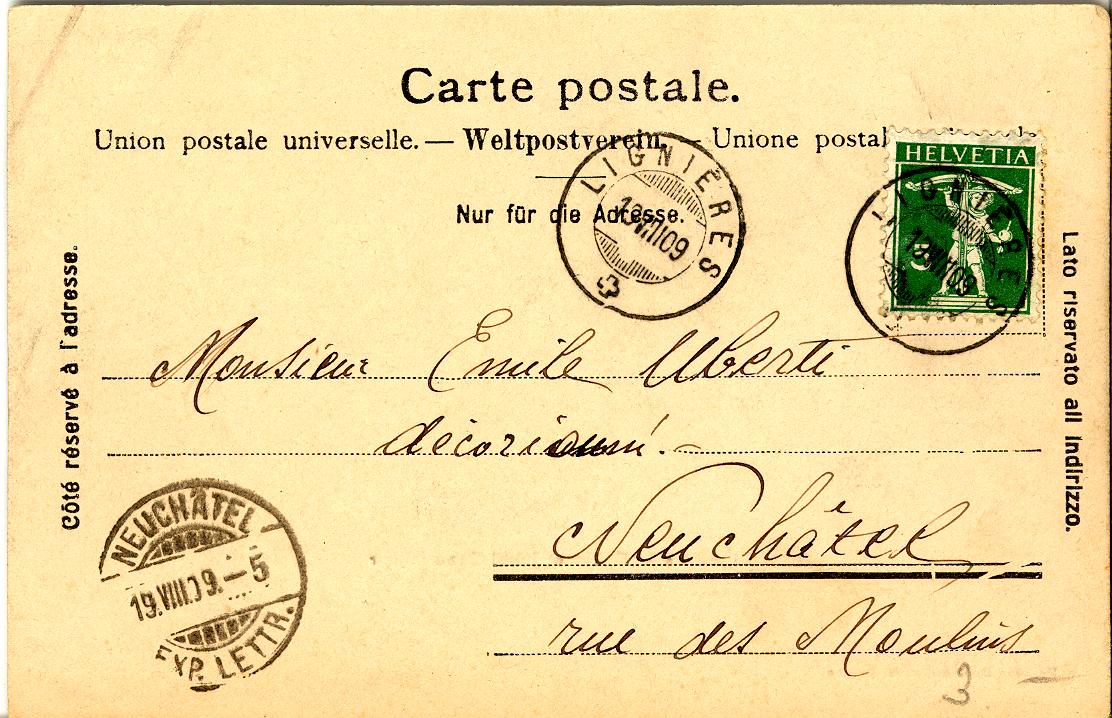 Carte postale.
Union postale universelle. — Weltpostverein. — Unione postale
Nur für die Adresse.
HELVETIA
LIGNIÈRES
LIGNIÈRES
Côté réservé à l'adresse.
Lato riservato all indirizzo.
Monsieur Emile Uberti
Neuchâtel
rue des Moulins
3
NEUCHÂTEL
19.VIII.09.–5
EXP. LETTR.